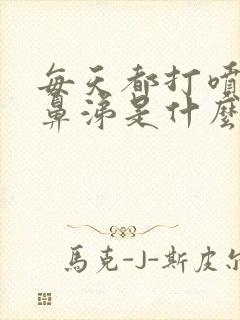 每天都打噴
鼻涕是什麼
馬克-J-斯皮尔